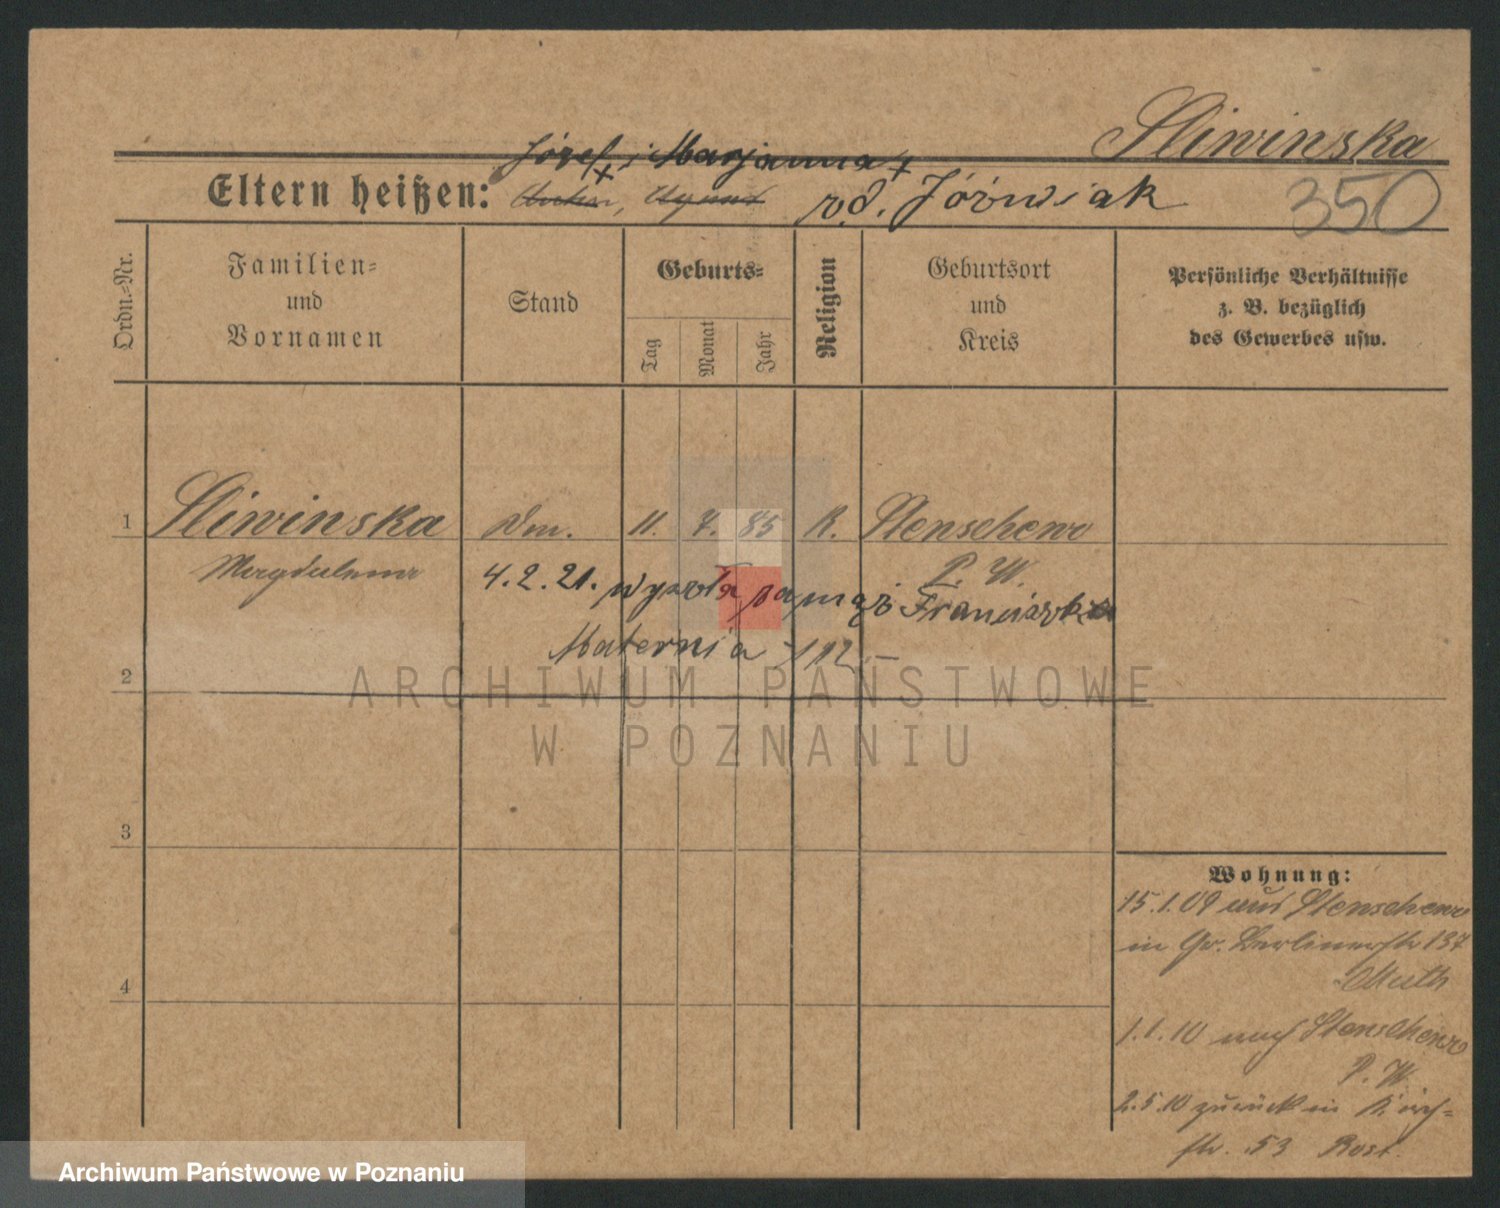 Sliwinska
Józef i Marjanna
Eltern heißen: Anton, r.d. Jóźwiak
350
Ordn.-Nr.
Familien-
und
Vornamen
Stand
Geburts-
Tag
Monat
Jahr
Religion
Geburtsort
und
Kreis
Persönliche Verhältnisse
z. B. bezüglich
des Gewerbes usw.
1 Sliwinska 11. 7. 85 K. Stenschewo
Magdalena P. W.
4.2.21. wyszła zamąż Franciszka
Maternia
2
3
4
Wohnung:
15.1.09 aus Stenschewo
in Gr. Berlinerstr 137
Muth
1.1.10 nach Stenschewo
P. W.
2.5.10 zurück in Kirch-
str. 53 Rost.
ARCHIWUM PAŃSTWOWE
W POZNANIU
Archiwum Państwowe w Poznaniu